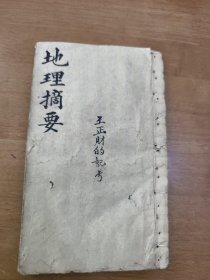 地理摘要
王正財的記考